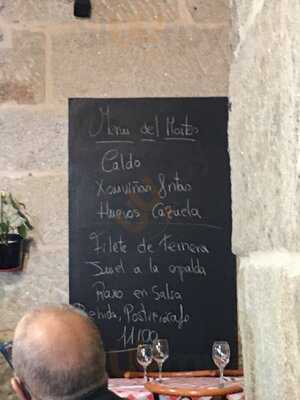 Menu del Martes
Caldo
Xouviñas fritas
Huevos Cazuela
Filete de Ternera
Jurel a la espalda
Raxo en Salsa
Bebida, Postre o cafe
11'00